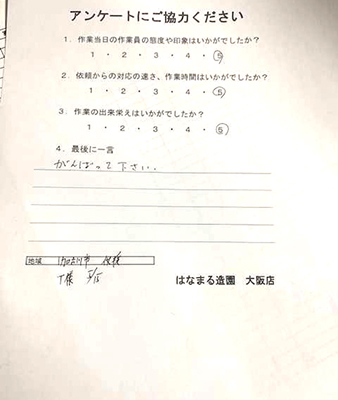 アンケートにご協力ください
1．作業当日の作業員の態度や印象はいかがでしたか？
1 ・ 2 ・ 3 ・ 4 ・ 5
2．依頼からの対応の速さ、作業時間はいかがでしたか？
1 ・ 2 ・ 3 ・ 4 ・ 5
3．作業の出来栄えはいかがでしたか？
1 ・ 2 ・ 3 ・ 4 ・ 5
4．最後に一言
がんばって下さい.
地域 加古川市
T様 5/15
はなまる造園 大阪店